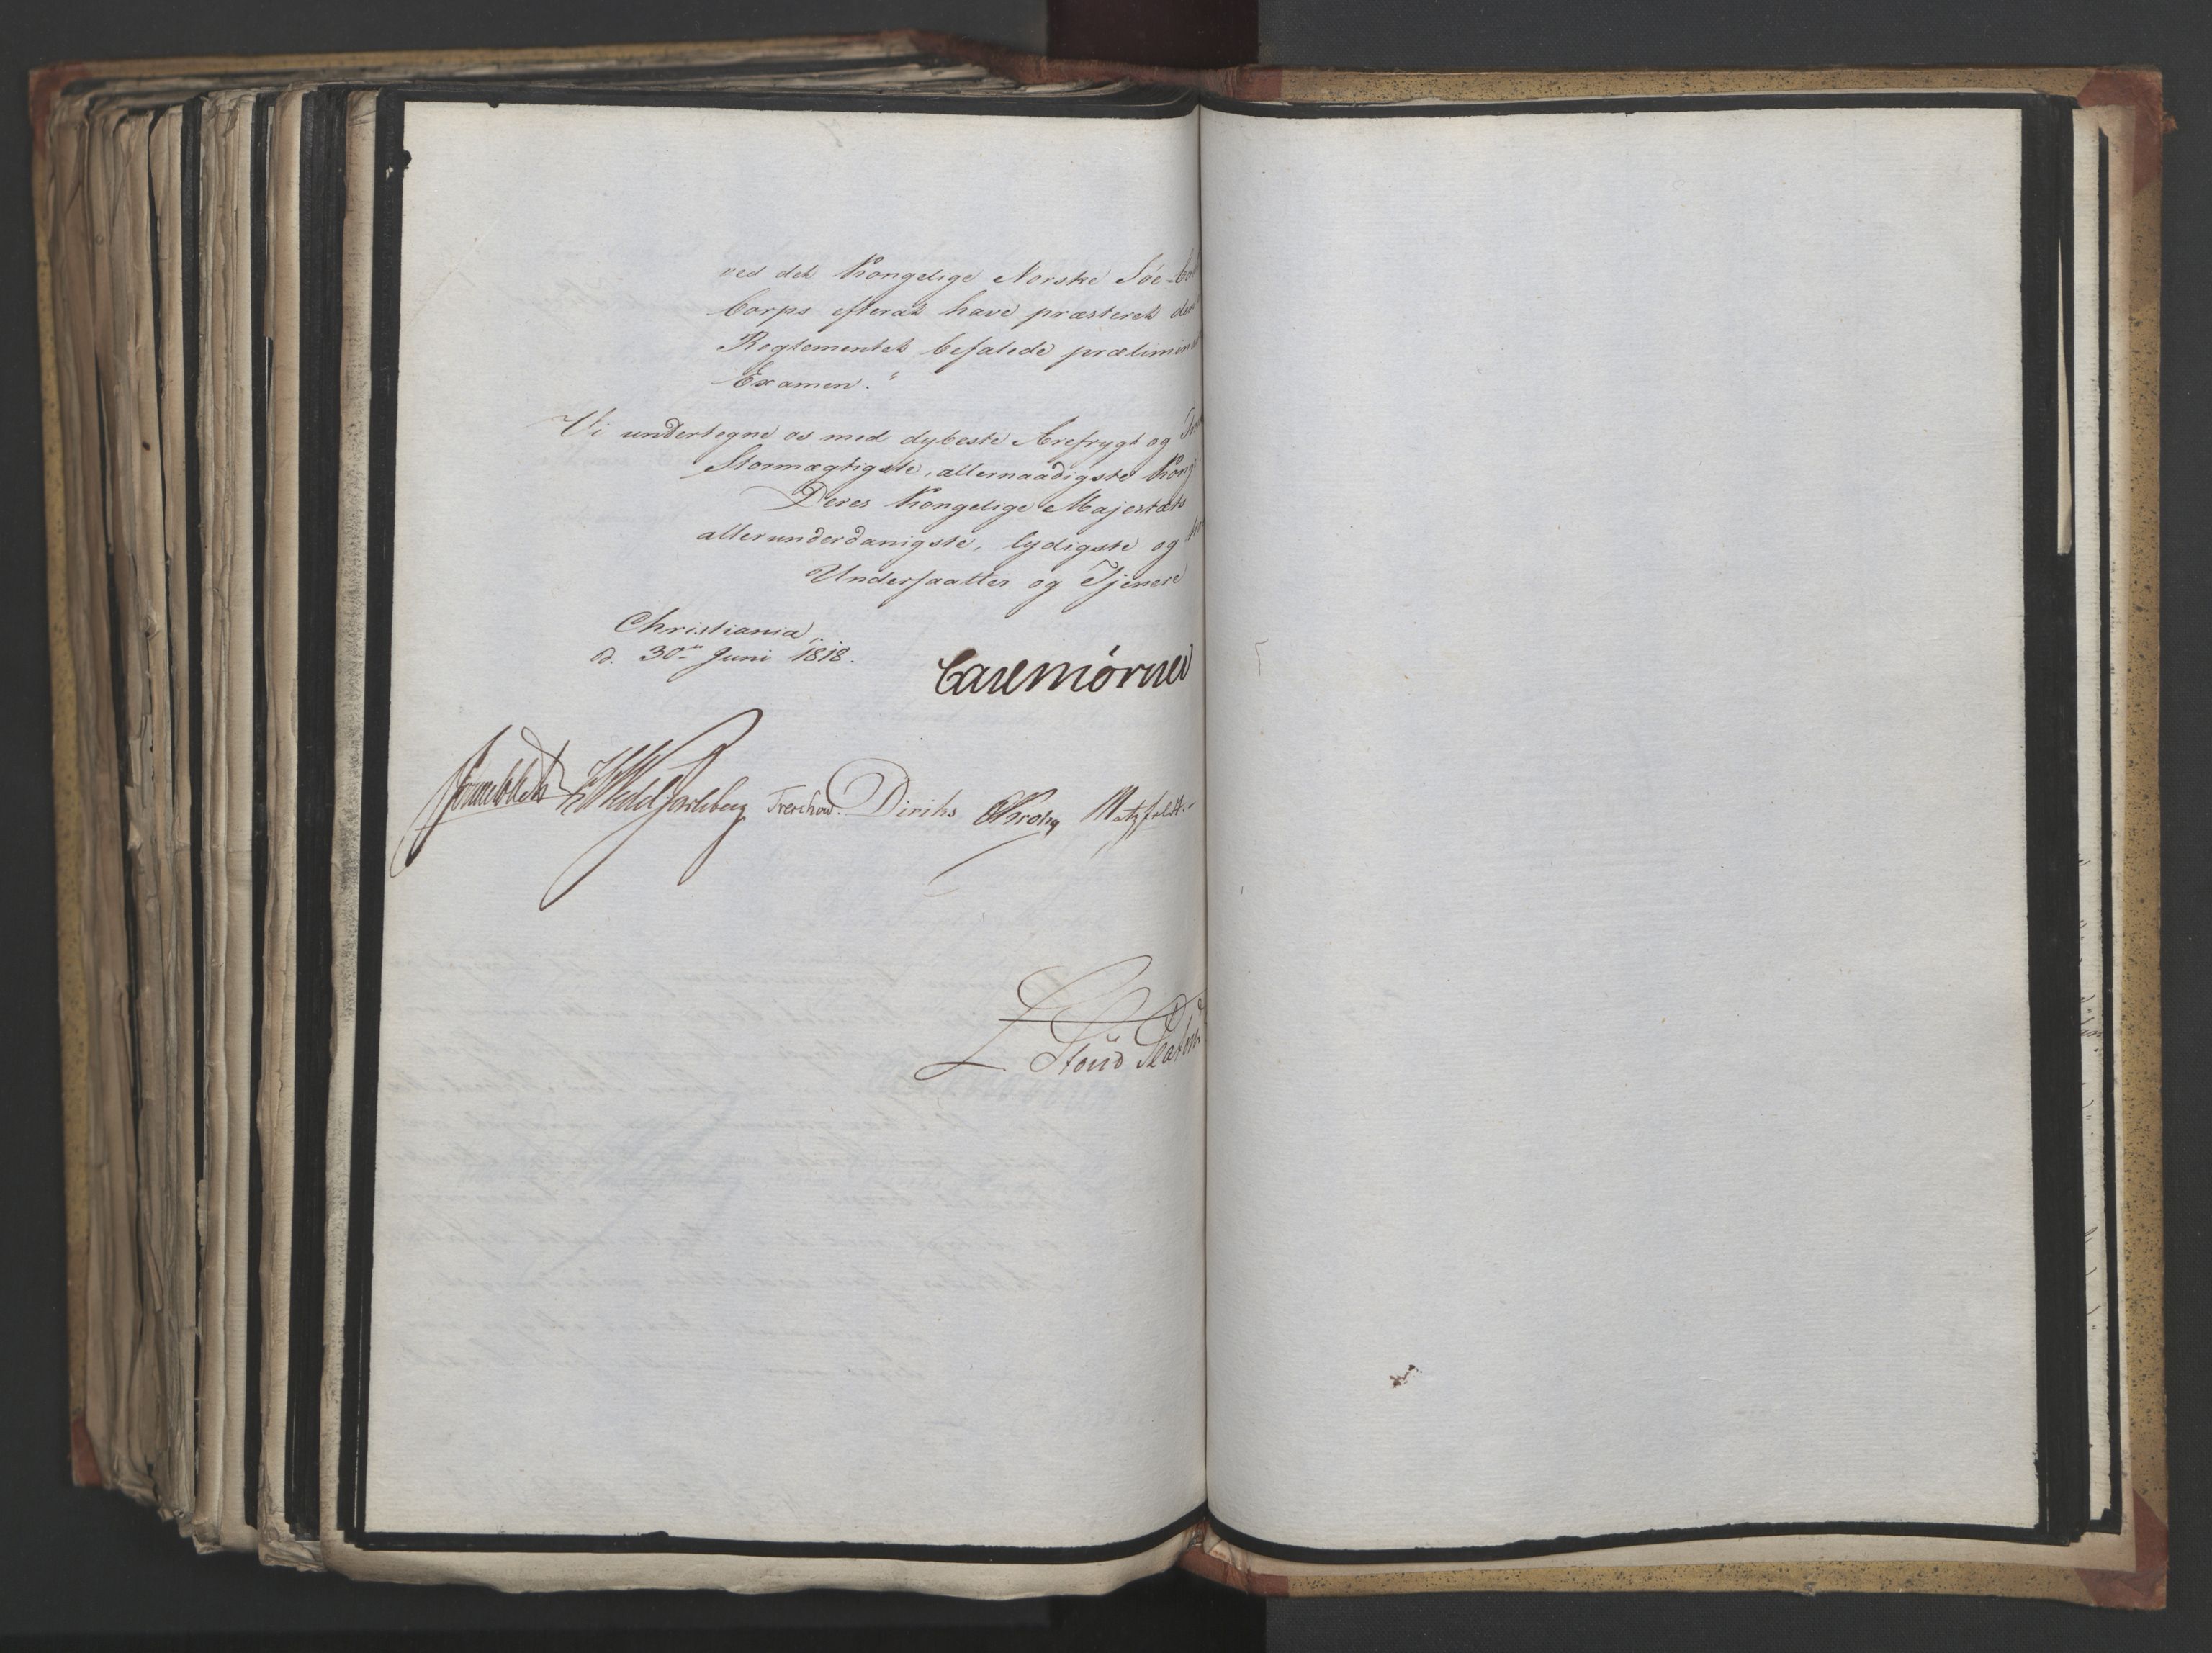 ved det Kongelige Norske Söe-Cad
Corps efterat have præsteret den
Reglementet befalede prælimin
Examen."
Vi undertegne os med dybeste Ærefrygt og
Stormægtigste, allernaadigste Konge
Deres Kongelige Majestæts
allerunderdanigste, lydigste og
Undersaatter og Tjenere
Christiania,
d. 30te Juni 1818.
Carl Mörner
Sommerhielm HWedel Jarlsberg Treschow. Diriks CKrohg Motzfeldt.
Stoud Platou